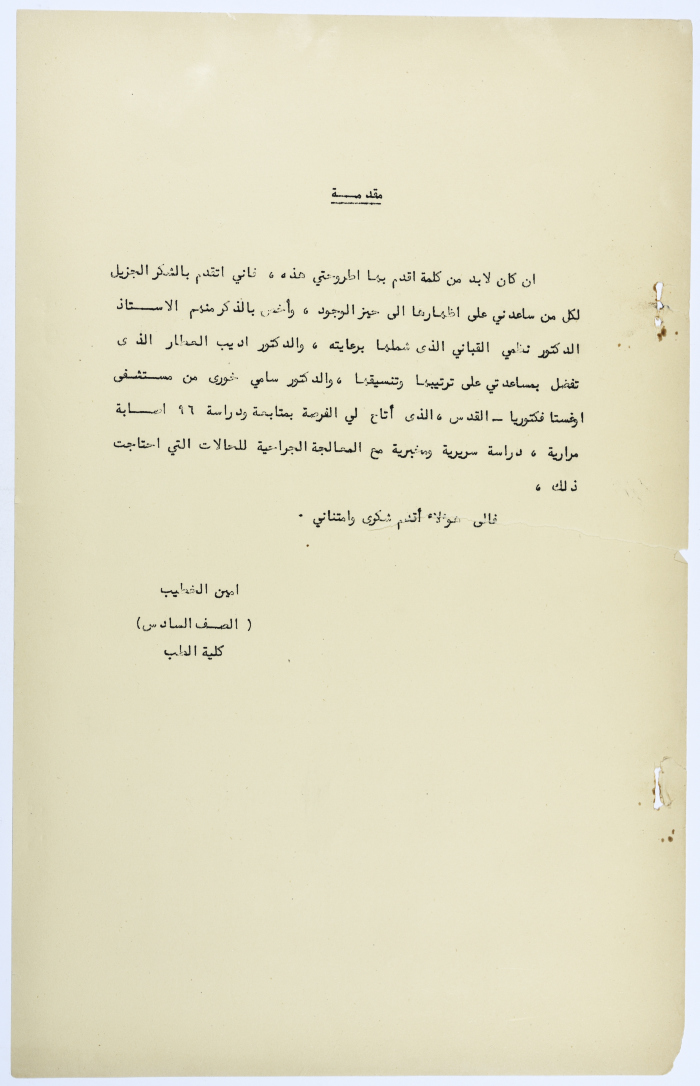 مقدمـــة
ان كان لابد من كلمة اقدم بها اطروحتي هذه ، فاني اتقدم بالشكر الجزيل
لكل من ساعدني على اظهارها الى حيز الوجود ، وأخص بالذكر منهم الاســـتاذ
الدكتور نظمي القباني الذى شملها برعايته ، والدكتور اديب العطار الذى
تفضل بمساعدتي على ترتيبها وتنسيقها ، والدكتور سامي خورى من مستشفى
اوغستا فكتوريا ــ القدس ، الذى أتاح لي الفرصة بمتابعة ودراسة ٩٦ اصـــابة
مرارية ، دراسة سريرية ومخبرية مع المعالجة الجراحية للحالات التي احتاجت
ذلك ،
فالى هوءلاء أقدم شكرى وامتناني .
امين الخطيب
( الصف السادس )
كلية الطب